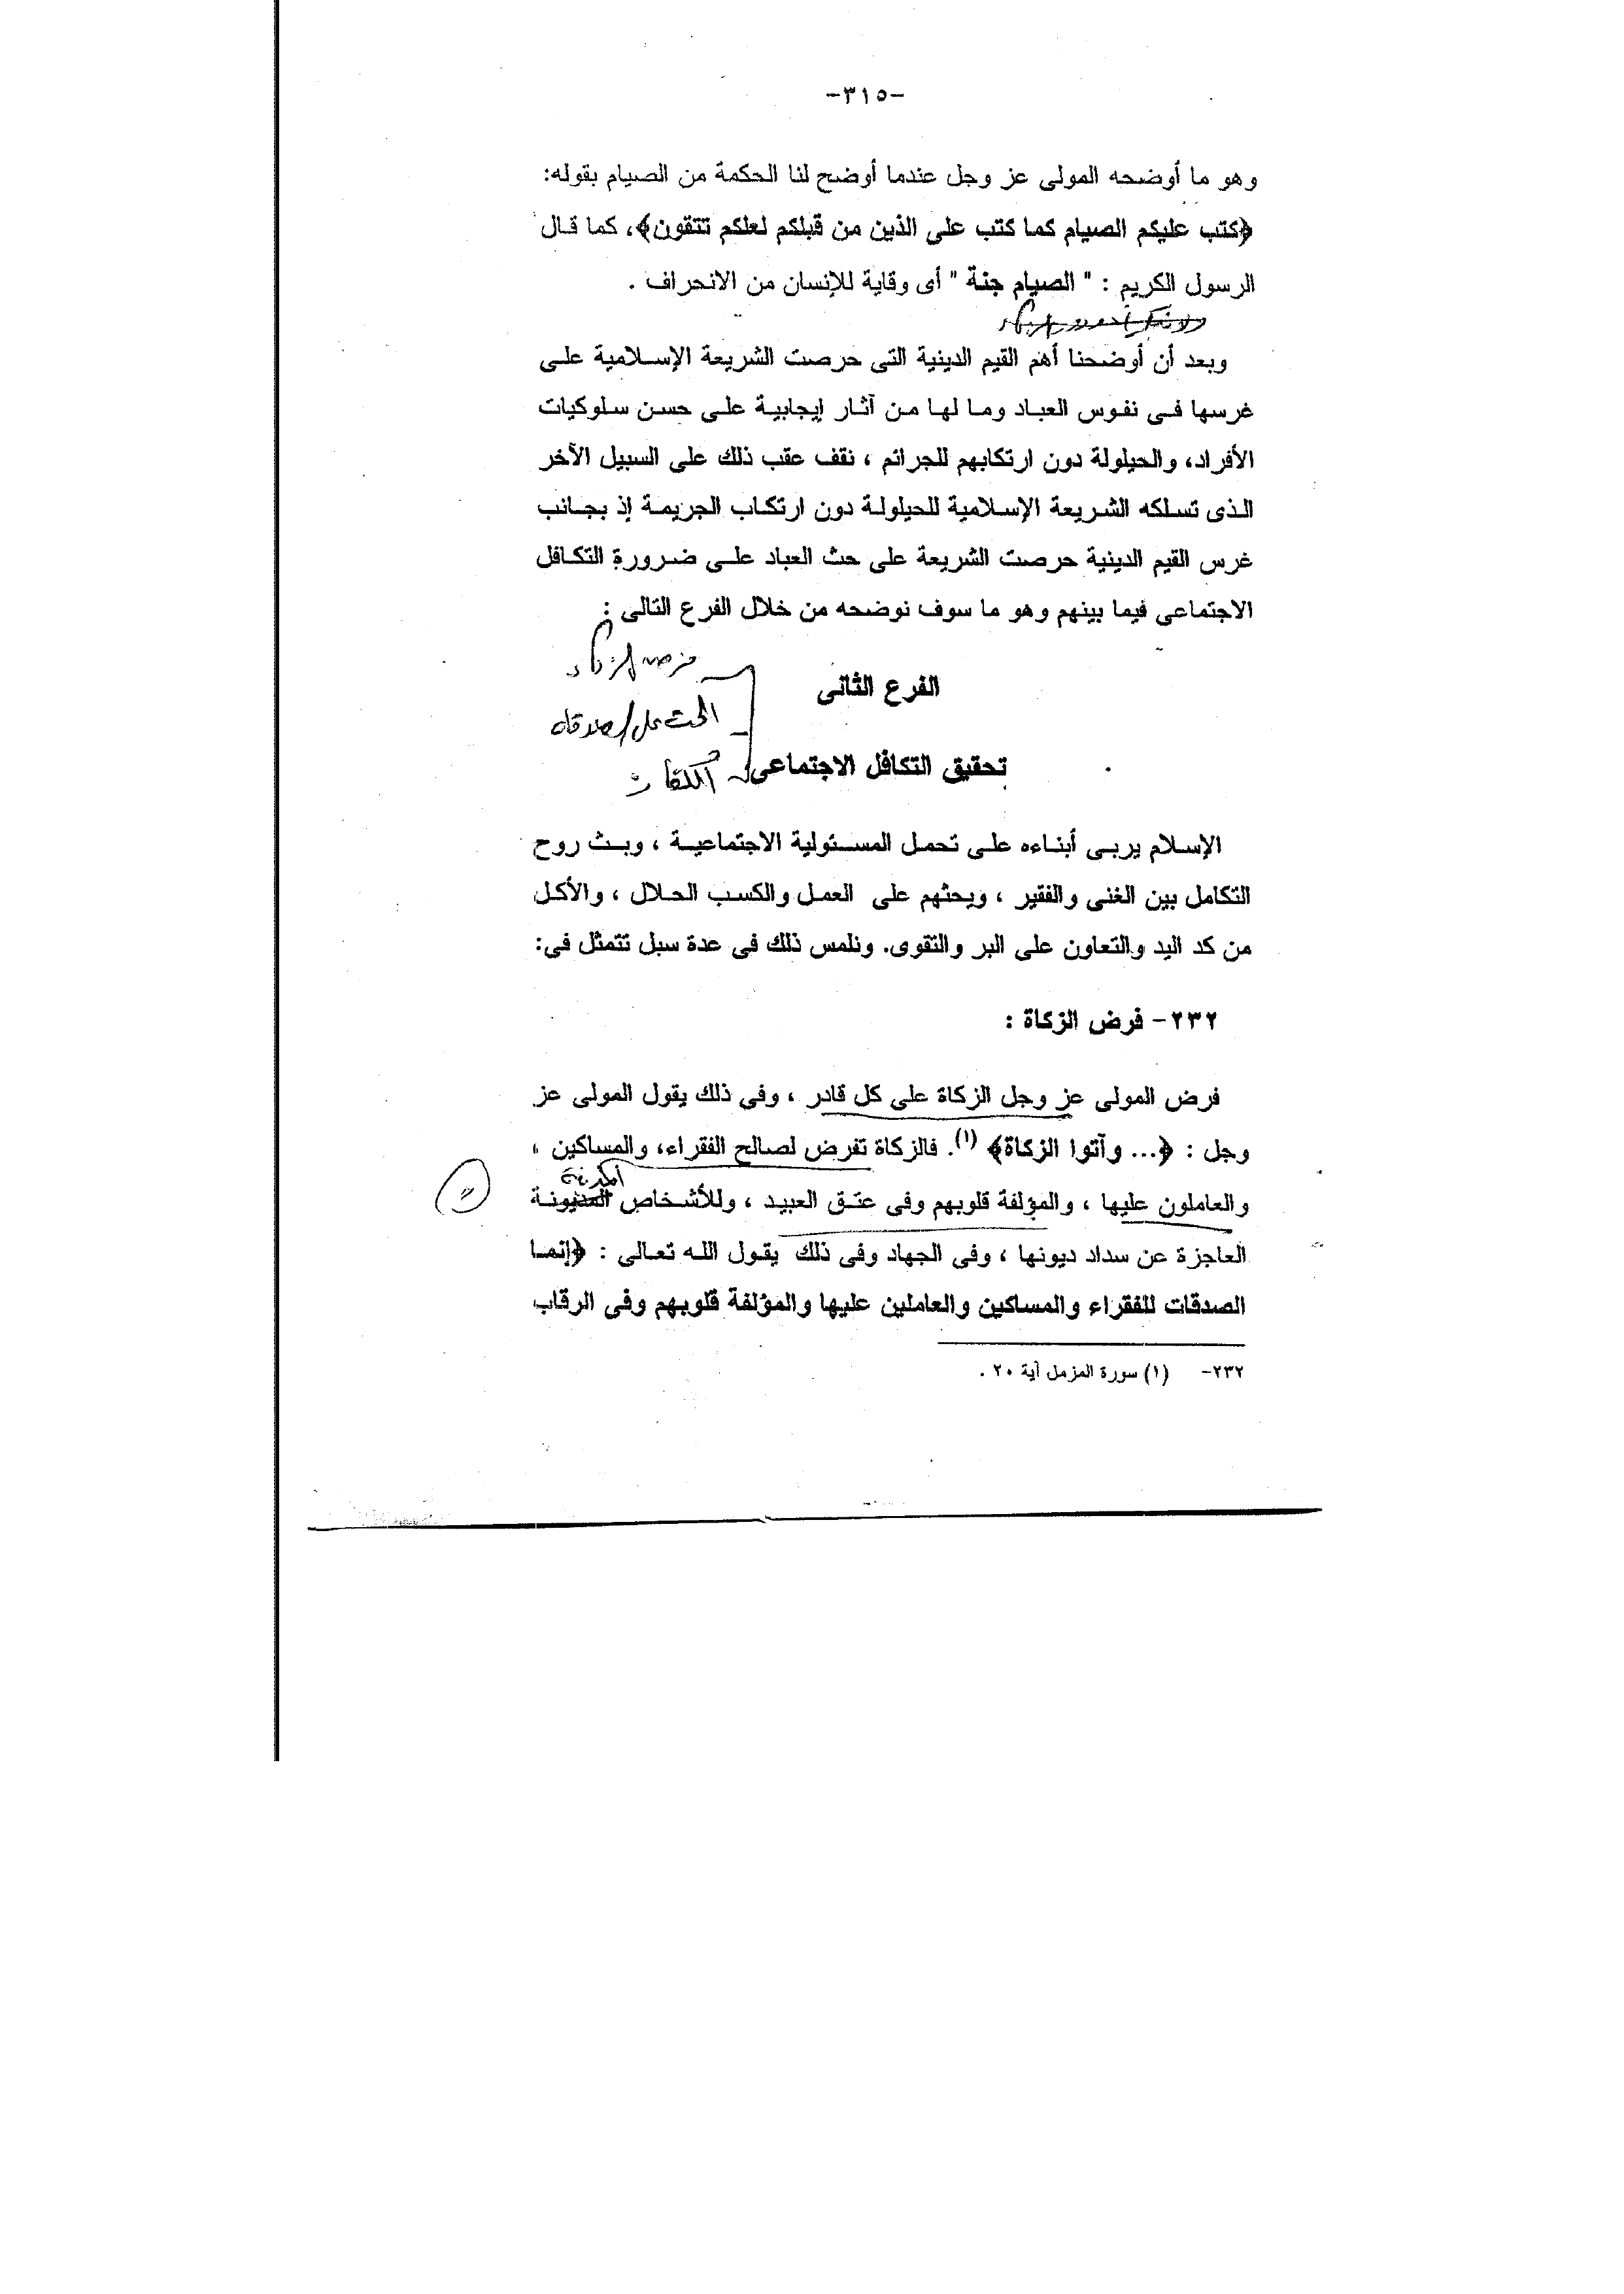 -٣١٥-
وهو ما أوضحه المولى عز وجل عندما أوضح لنا الحكمة من الصيام بقوله:
﴿كتب عليكم الصيام كما كتب على الذين من قبلكم لعلكم تتقون﴾، كما قال
الرسول الكريم : " الصيام جنة " أى وقاية للإنسان من الانحراف .
وبعد أن أوضحنا أهم القيم الدينية التى حرصت الشريعة الإسلامية على
غرسها فى نفوس العباد وما لها من آثار إيجابية على حسن سلوكيات
الأفراد، والحيلولة دون ارتكابهم للجرائم ، نقف عقب ذلك على السبيل الآخر
الذى تسلكه الشريعة الإسلامية للحيلولة دون ارتكاب الجريمة إذ بجانب
غرس القيم الدينية حرصت الشريعة على حث العباد على ضرورة التكافل
الاجتماعى فيما بينهم وهو ما سوف نوضحه من خلال الفرع التالى :
فرض الزكاة
الفرع الثانى
الحث على الصدقات
تحقيق التكافل الاجتماعى
الكفارات
الإسلام يربى أبناءه على تحمل المسئولية الاجتماعية ، وبث روح
التكامل بين الغنى والفقير ، ويحثهم على العمل والكسب الحلال ، والأكل
من كد اليد والتعاون على البر والتقوى. ونلمس ذلك فى عدة سبل تتمثل فى:
٢٣٢- فرض الزكاة :
فرض المولى عز وجل الزكاة على كل قادر ، وفى ذلك يقول المولى عز
وجل : ﴿... وآتوا الزكاة﴾ (١). فالزكاة تفرض لصالح الفقراء، والمساكين ،
والعاملون عليها ، والمؤلفة قلوبهم وفى عتق العبيد ، وللأشخاص المديونة
العاجزة عن سداد ديونها ، وفى الجهاد وفى ذلك يقول الله تعالى : ﴿إنما
الصدقات للفقراء والمساكين والعاملين عليها والمؤلفة قلوبهم وفى الرقاب
٢٣٢- (١) سورة المزمل آية ٢٠ .